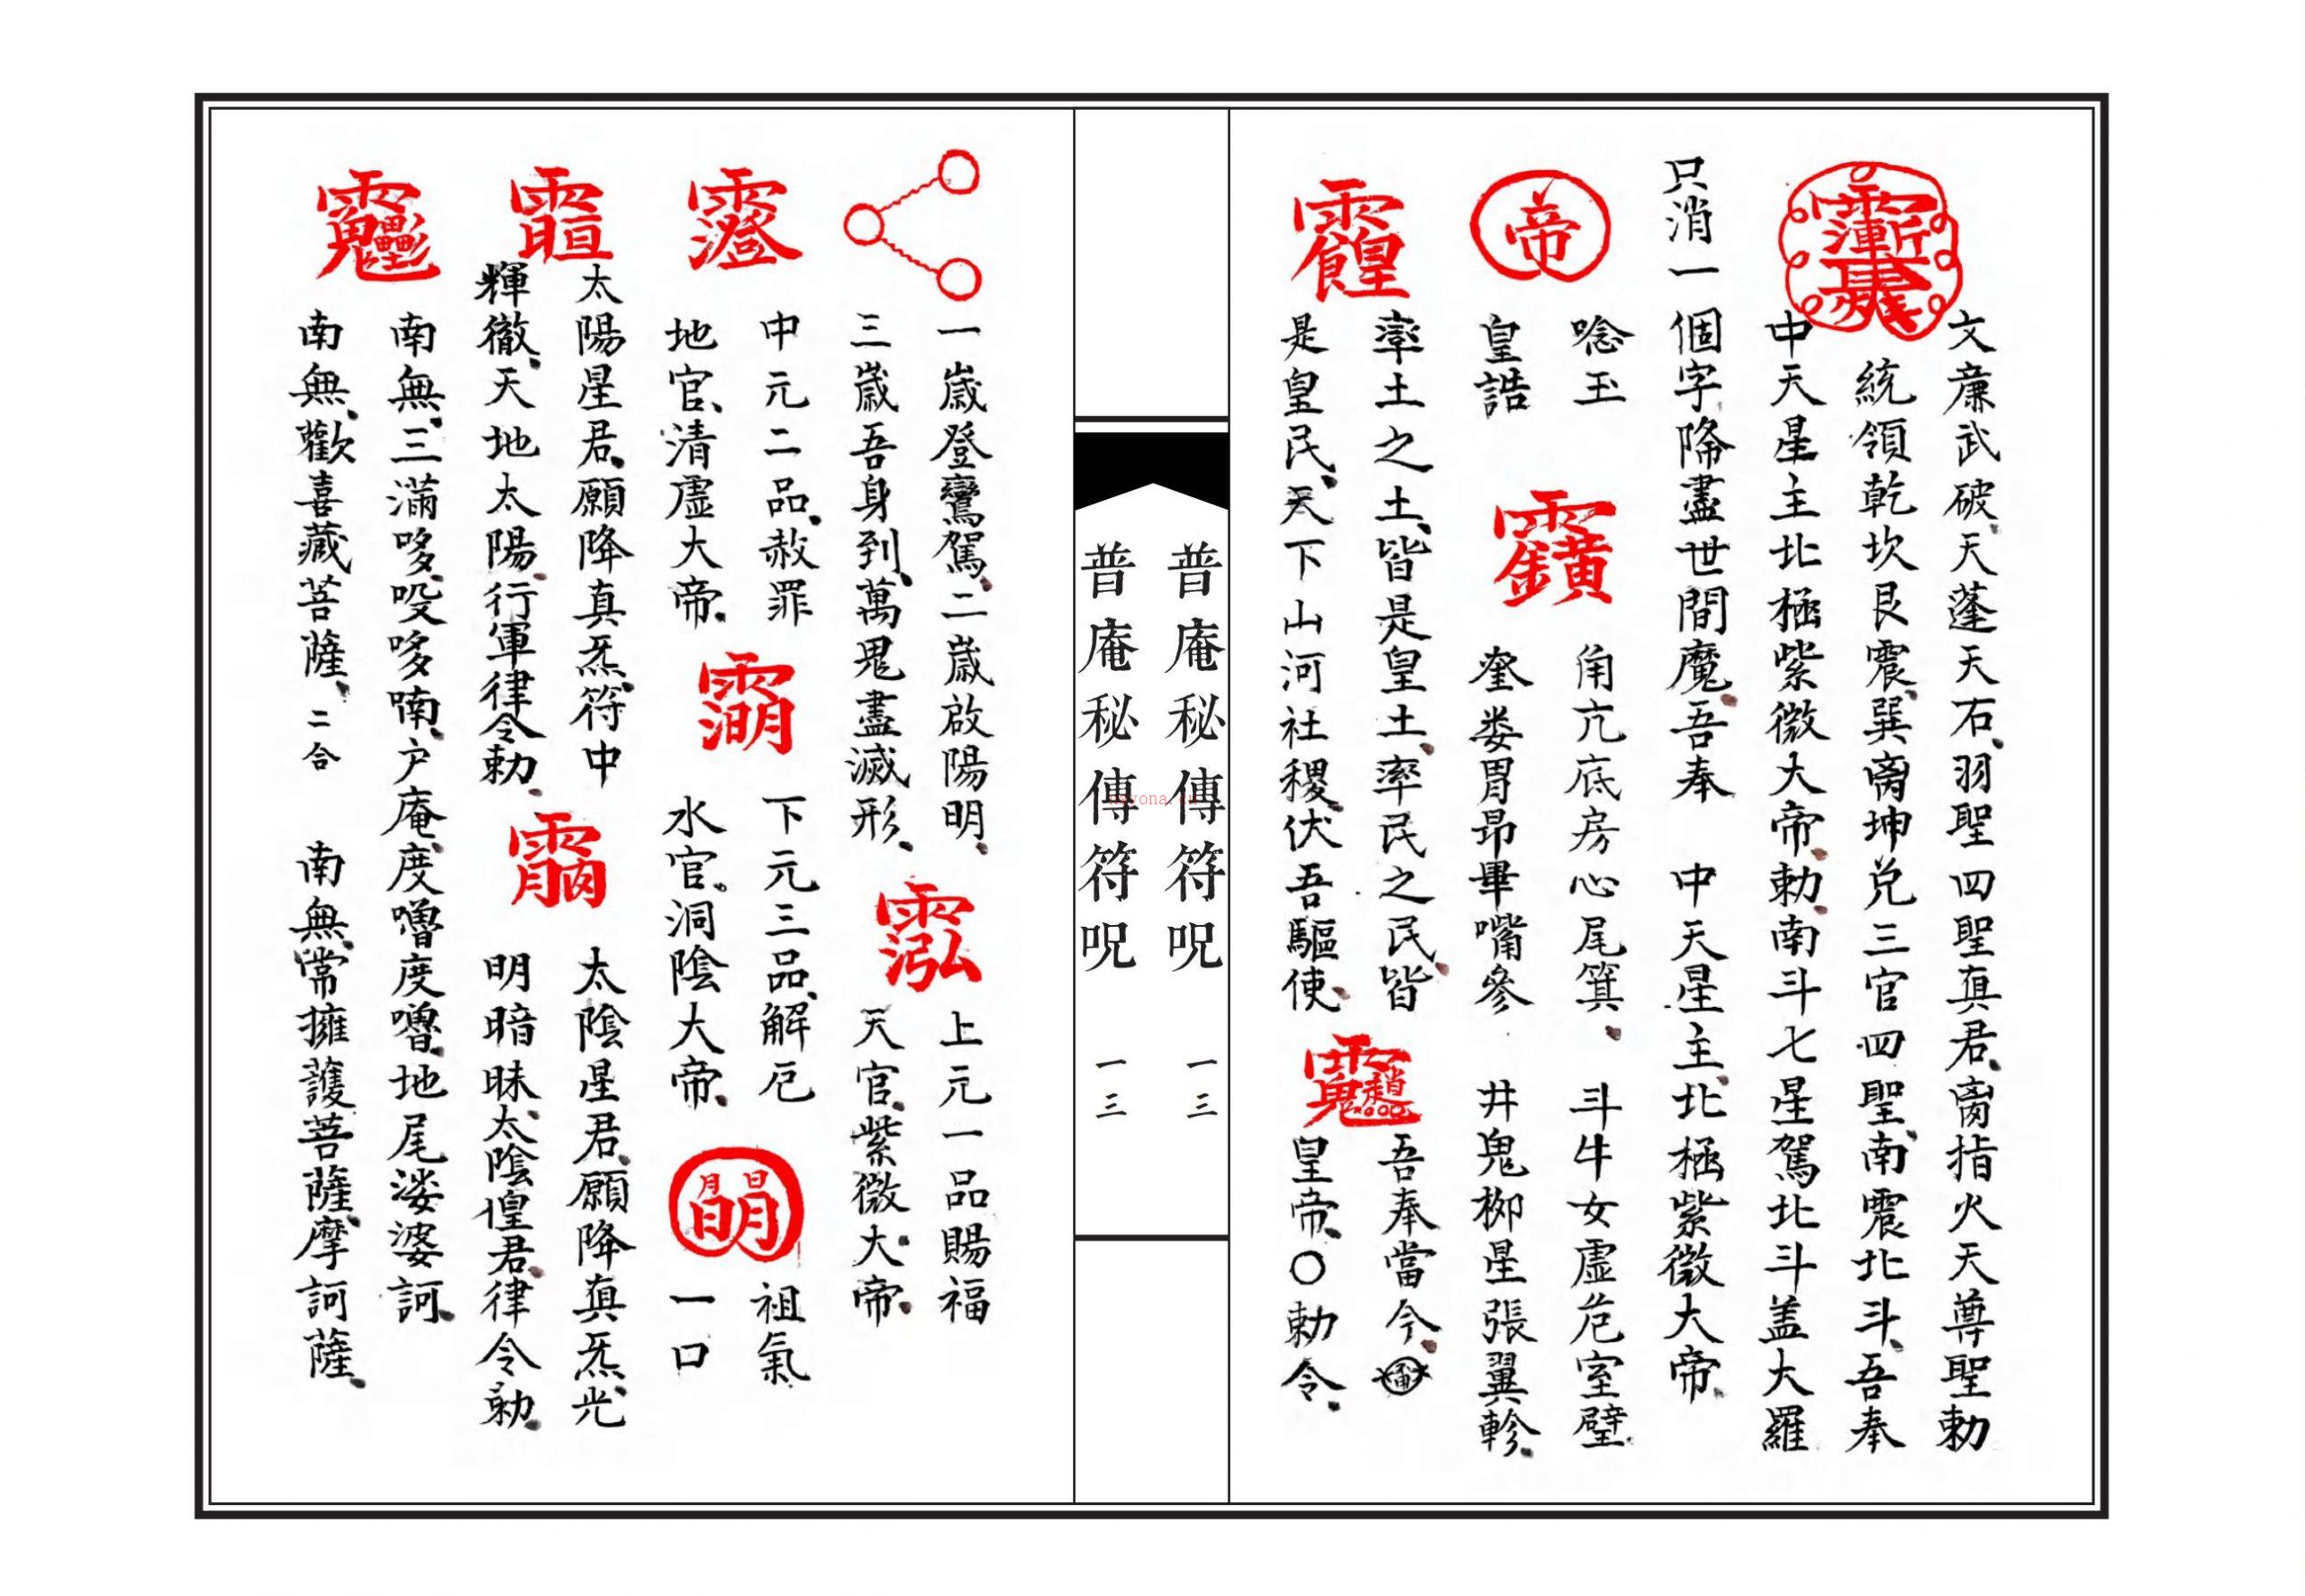 文廉武破、天蓬天石、羽聖四聖真君、离指火天尊聖勅
統領乾坎艮震、巽离坤兌三官四聖、南震北斗、吾奉
中天星主北極紫微大帝、勅、南斗七星駕北斗盖大羅
只消一個字降盡世間魔、吾奉 中天星主、北極紫微大帝、
唸玉
皇誥
帝
角亢底房心尾箕、 斗牛女虛危室壁
奎娄胃昴畢嘴參 井鬼柳星張翼軫、
率土之土、皆是皇土、率民之民、皆
是皇民、天下山河社稷、伏吾驅使、
吾奉當今、
皇帝、〇勅令、
普庵秘傳符呪 一三
普庵秘傳符呪 一三
一歲登鸞駕、二歲啟陽明、
三歲吾身到、萬鬼盡滅形、
上元一品賜福
天官、紫微大帝、
中元二品、赦罪
地官、清虛大帝、
下元三品、解厄
水官。洞陰大帝、
祖氣
一口
太陽星君、願降真炁、符中
輝徹、天地太陽、行軍律令勅、
太陰星君、願降真炁、光
明暗昧、太陰皇君、律令勅、
南無、三滿哆、㖿哆喃、户庵、度嚕度嚕、地尾溇婆訶、
南無、歡喜藏菩薩、二合 南無、常擁護菩薩、摩訶薩、